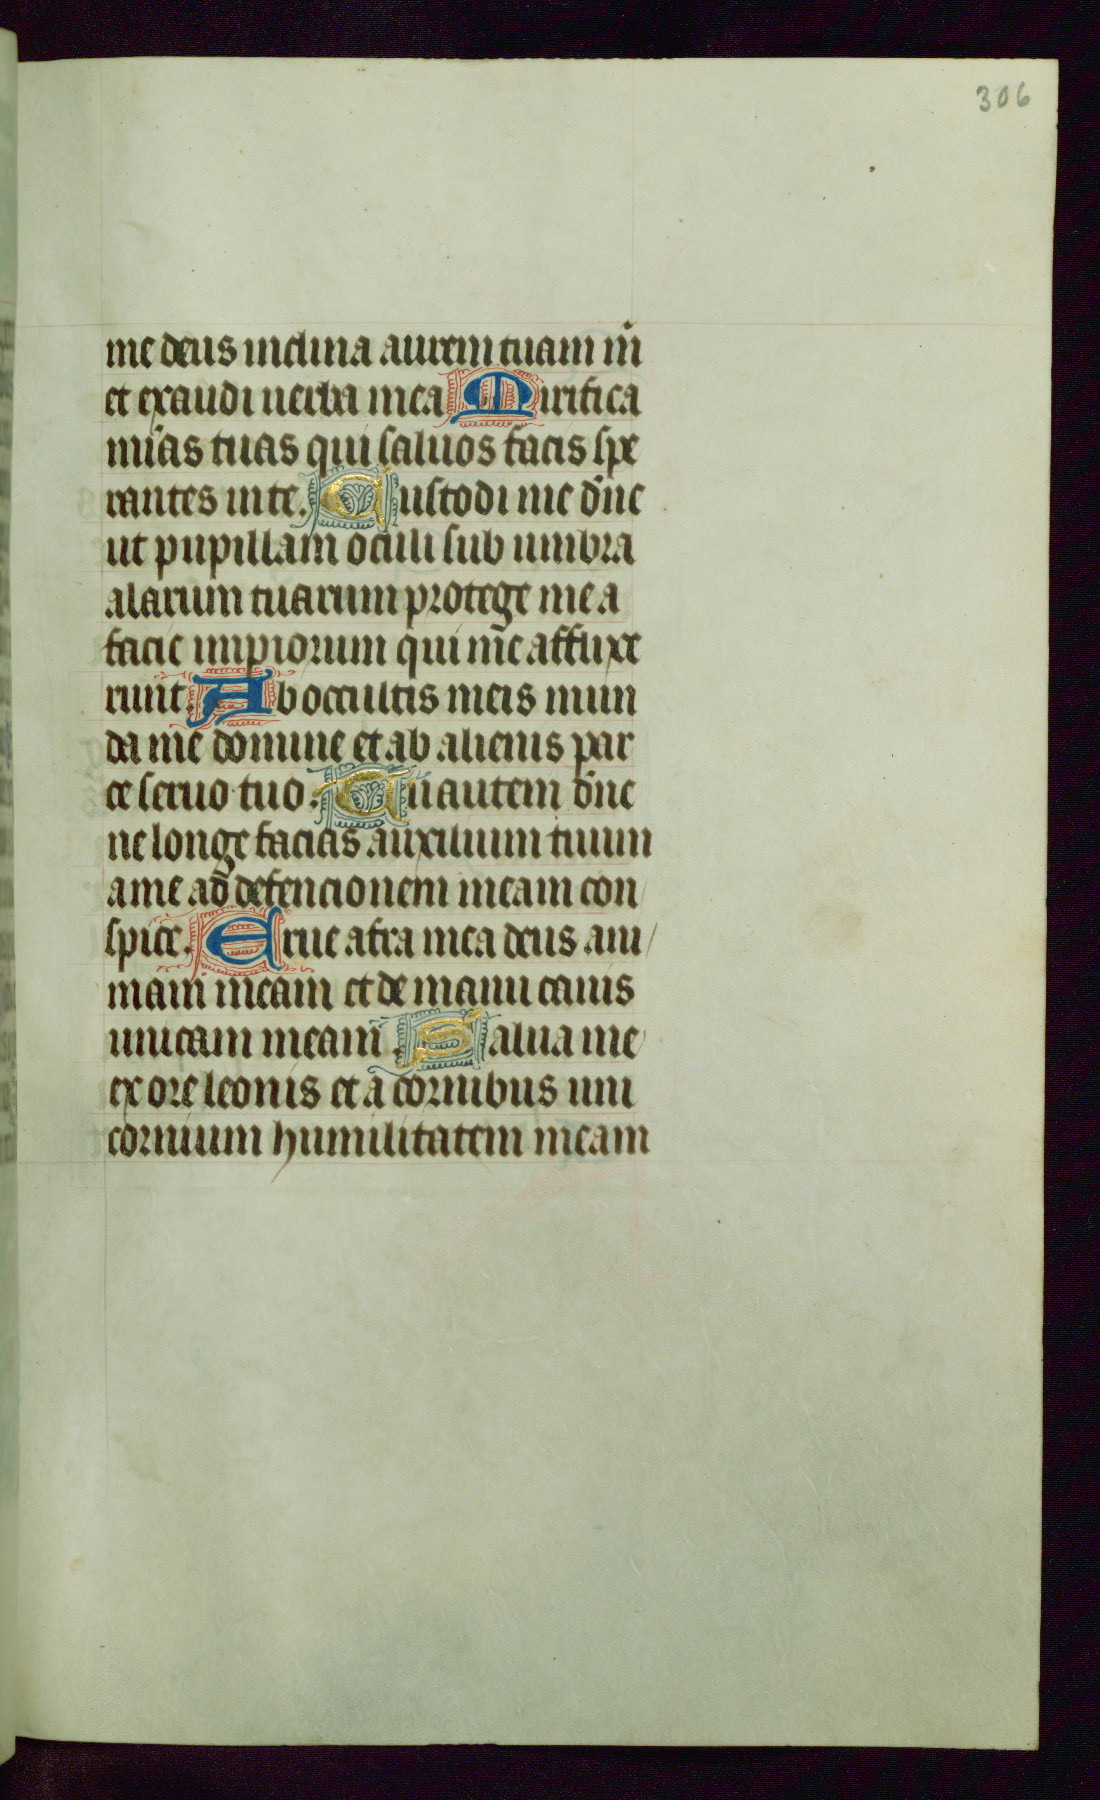 306
me deus inclina aurem tuam m̅
et exaudi uerba mea Mirifica
mi̅as tuas qui saluos facis spe
rantes in te. Custodi me dn̅e
ut pupillam oculi sub umbra
alarum tuarum protege me a
facie impiorum qui me afflixe
runt. Ab occultis meis mun
da me domine et ab alienis par
ce seruo tuo. Tu autem dn̅e
ne longe facias auxilium tuum
a me ad defencionem meam con
spice. Erue a fra mea deus ani
mam meam et de manu canis
unicam meam. Salua me
ex ore leonis et a cornibus uni
cornium humilitatem meam